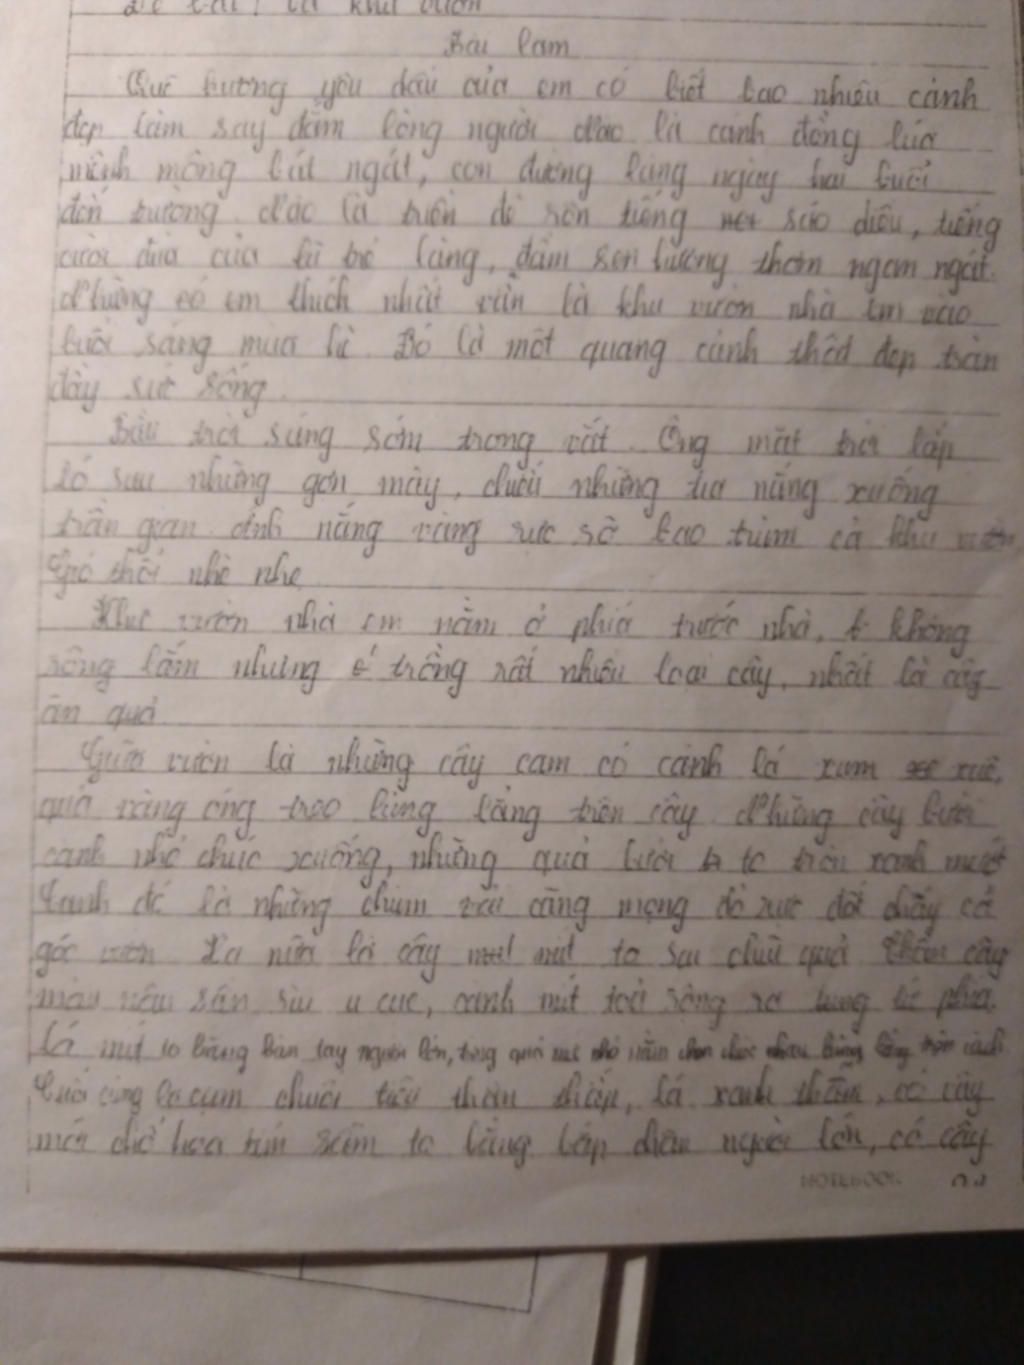 Đề bài: tả khu vườn
Bài làm
Quê hương yêu dấu của em có biết bao nhiêu cảnh
đẹp làm say đắm lòng người. Nào là cánh đồng lúa
mênh mông bát ngát, con đường làng ngày hai buổi
đến trường. Nào là triền đê rộn tiếng sáo diều, tiếng
cười đùa của lũ trẻ làng, đầm sen hương thơm ngan ngát.
Nhưng có em thích nhất vẫn là khu vườn nhà em vào
buổi sáng mùa hè. Đó là một quang cảnh thật đẹp tràn
đầy sức sống.
Bầu trời sáng sớm trong vắt. Ông mặt trời lấp
ló sau những gợn mây, chiếu những tia nắng xuống
trần gian. Ánh nắng vàng rực rỡ bao trùm cả khu vườn
Gió thổi nhè nhẹ.
Khu vườn nhà em nằm ở phía trước nhà, không
rộng lắm nhưng trồng rất nhiều loại cây, nhất là cây
ăn quả.
Giữa vườn là những cây cam có cành lá xum xuê,
quả vàng óng treo lủng lẳng trên cây. Những cây bưởi
cành nhỏ chúc xuống, những quả bưởi to tròn xanh mướt
Cạnh đó là những chùm vải căng mọng đỏ rực đốt cháy cả
góc vườn. Xa nữa là cây mít to sai chĩu quả. Thân cây
màu nâu sần sùi u cục, cành mít toả rộng ra tứ phía.
Lá mít to bằng bàn tay người lớn, từng quả mít nhỏ nằm chen chúc nhau trên cành
Cuối cùng là cụm chuối tiêu thân thấp, lá xanh thẫm, có cây
mới chỉ hoa tím sẫm to bằng bắp chân người lớn, có cây
NOTEBOOK